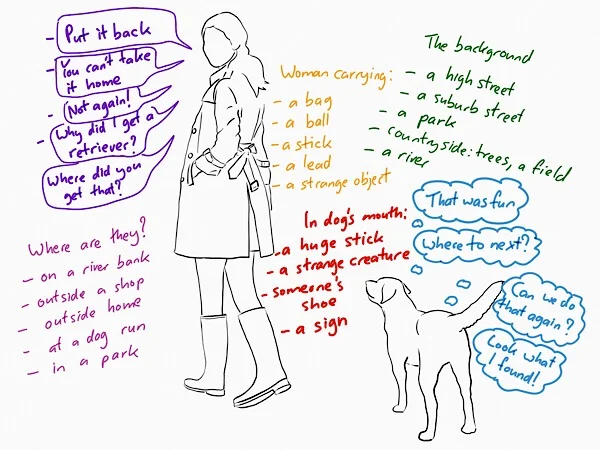 - Put it back
- You can't take
it home
- Not again!
- Why did I get a
retriever?
Where did you
get that?
Woman carrying:
- a bag
- a ball
- a stick
- a lead
- a strange object
The background
- a high street
- a suburb street
- a park
- countryside: trees, a field
- a river
Where are they?
- on a river bank
- outside a shop
- outside home
- at a dog run
- in a park
In dog's mouth:
- a huge stick
- a strange creature
- someone's
shoe
- a sign
That was fun
Where to next?
Can we do
that again?
Look what
I found!